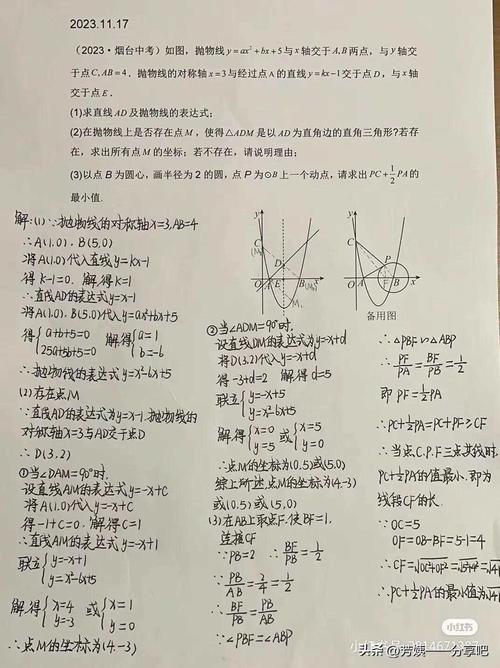 2023.11.17
(2023·烟台中考)如图，抛物线y=ax²+bx+5与x轴交于A,B两点，与y轴交
于点C,AB=4．抛物线的对称轴x=3与经过点A的直线y=kx-1交于点D，与x轴
交于点E．
(1)求直线AD及抛物线的表达式；
(2)在抛物线上是否存在点M，使得△ADM是以AD为直角边的直角三角形?若存
在，求出所有点M的坐标；若不存在，请说明理由；
(3)以点B为圆心，画半径为2的圆，点P为⊙B上一个动点，请求出PC+1/2PA的
最小值．
解:(1)∵抛物线的对称轴x=3,AB=4
∴A(1.0)．B(5,0)
将A(1.0)代入直线y=kx-1
得k-1=0. 解得k=1
∴直线AD的表达式y=x-1
将A(1.0)．B(5.0)代入y=ax²+bx+5
得{a+b+5=0 解得{a=1
25a+5b+5=0 b=-6
∴抛物线的表达式y=x²-6x+5
(2)存在点M
∵直线AD的表达式为y=x-1.抛物线的
对称轴x=3与AD交于点D
∴D(3,2)
①当∠DAM=90°时.
设直线AM的表达式y=-x+C
将A(1.0)代入y=-x+C
得-1+C=0. 解得C=1
∴直线AM的表达式y=-x+1
联立{y=-x+1
y=x²-6x+5
解得{x=4 或{x=1
y=-3 y=0
∴点M的坐标为(4.-3)
y
C
(M₂)
D
O
A
E
B
(M₃)
x
M₁
y
C
P
O
A
F
B
x
备用图
②当∠ADM=90°时.
设直线DM的表达式为y=-x+d
将D(3.2)代入y=-x+d
得-3+d=2 解得d=5
联立{y=-x+5
y=x²-6x+5
解得{x=0 或{x=5
y=5 y=0
∴点M的坐标为(0.5)或(5.0)
综上所述.点M的坐标为(4.-3)
或(0.5)或(5,0)
(3)在AB上取点F.使BF=1,
连接CF
∵PB=2 ∴BF/PB=1/2
∵PB/AB=2/4=1/2
∴BF/PB=PB/AB
∵∠PBF=∠ABP
∴△PBF∽△ABP
∴PF/PA=BF/PB=1/2
即PF=1/2PA
∴PC+1/2PA=PC+PF≥CF
∴当点C.P.F三点共线时.
PC+1/2PA的值最小.即为
线段CF的长.
∵OC=5
OF=OB-BF=5-1=4
∴CF=√OC²+OF²=√5²+4²=√41
∴PC+1/2PA的最小值为√41
小红书
头条 @芳姨一一分享吧